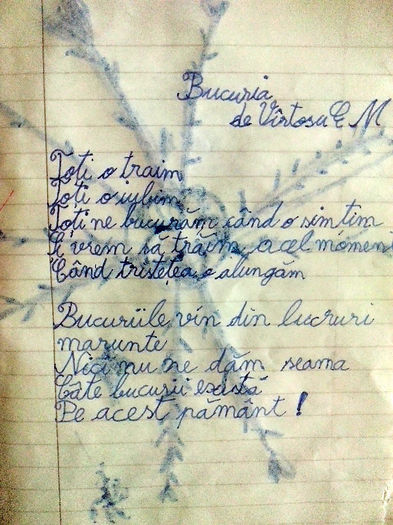 Bucuria
de Vîrtosu E M
Toti o traim
Toti o iubim
Toti ne bucurăm când o simtim
Și vrem să trăim acel moment
Când tristețea o alungăm
Bucuriile vin din lucruri
marunte
Nici nu ne dăm seama
Câte bucurii există
Pe acest pământ!